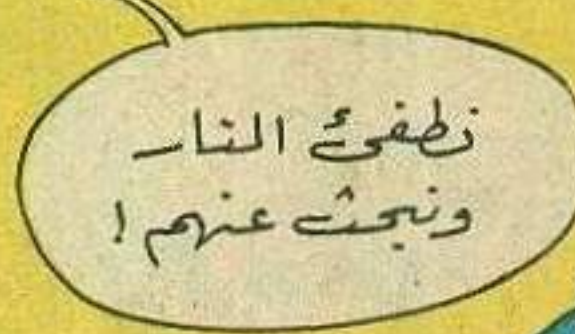 نطفئ النار
ونبحث عنهم !